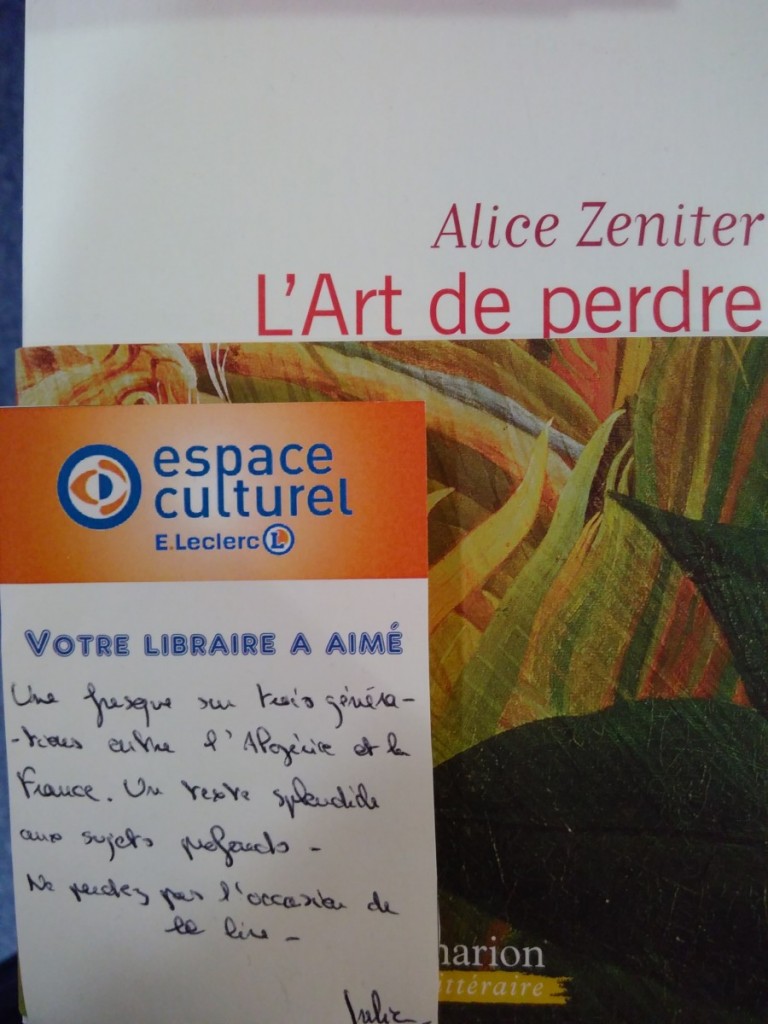 Alice Zeniter
L'Art de perdre
espace
culturel
E.Leclerc L
VOTRE LIBRAIRE A AIMÉ
Une fresque sur trois généra-
-tions entre l'Algérie et la
France. Un texte splendide
aux sujets profonds -
Ne perdez pas l'occasion de
le lire -
marion
ittéraire